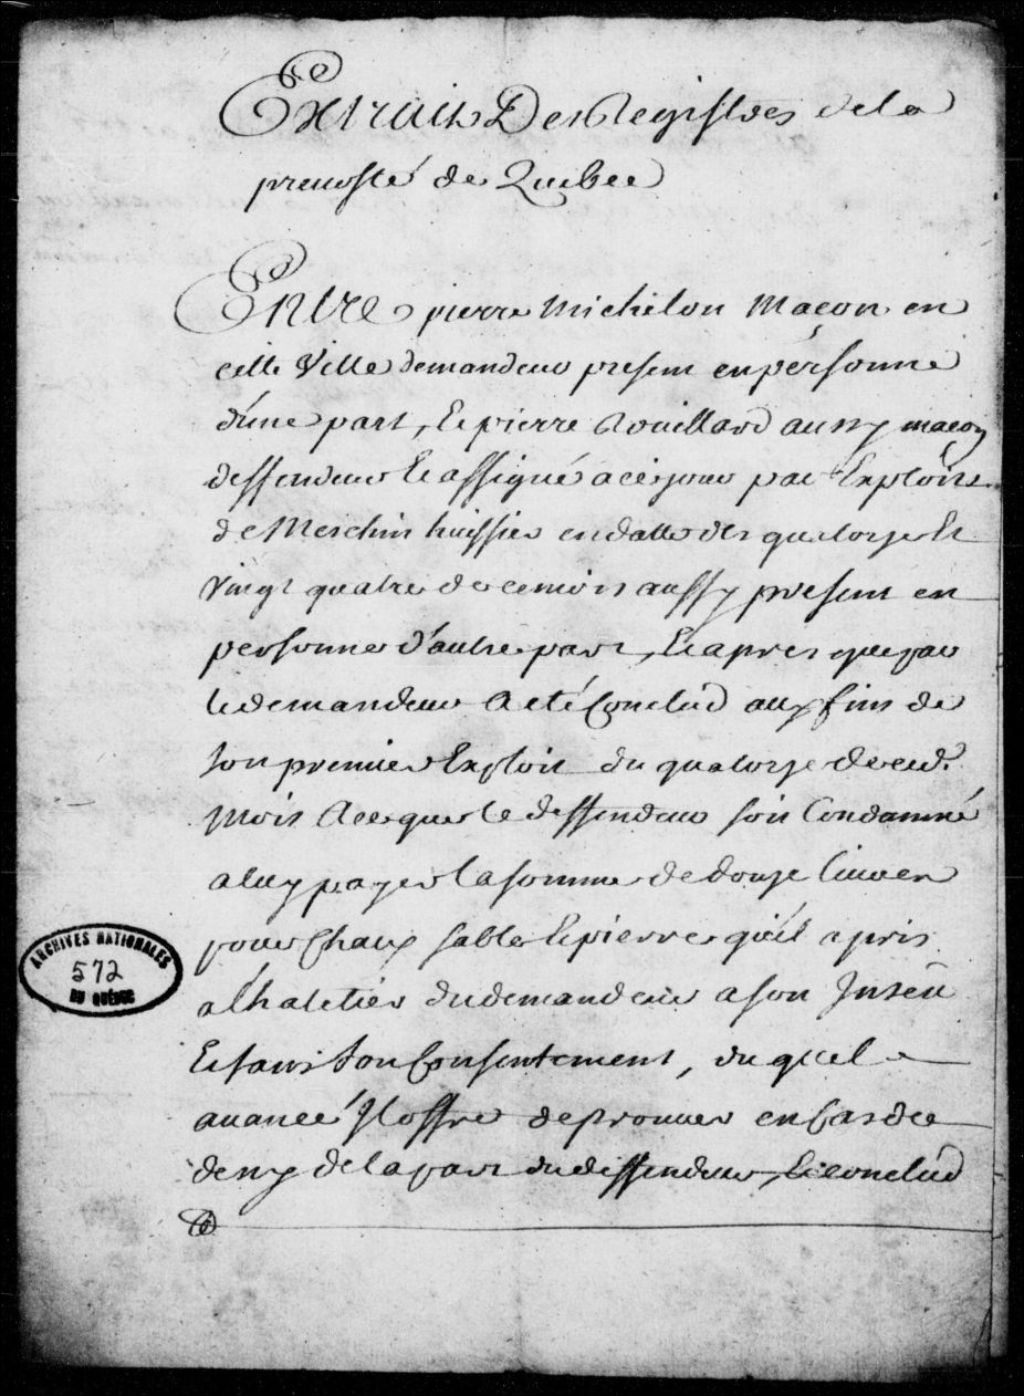 Extrait Des Registres de la
preuosté de Quebec
Entre pierre Michelon Maçon en
cette Ville demandeur present en personne
d'une part, Et pierre Rouillard aussy maçon
deffendeur Et assigné a ce jour par Exploits
de Meschin huissier en datte des quatorze Et
Vingt quatre de ce mois aussy present en
personne d'autre part, Et apres que par
le demandeur A eté Conclud aux fins de
son premier Exploit du quatorze de ced.
Mois A ce que le deffendeur soit Condamné
a luy payer la somme de douze liures
pour Chaux sable Et pierre qu'il a pris
a l'hatelier du demandeur a son Insceu
Et sans son Consentement, du quel
auancé Il offre de prouuer en Cas de
deny de la part du deffendeur, Et conclud
ARCHIVES NATIONALES
572
DU QUÉBEC